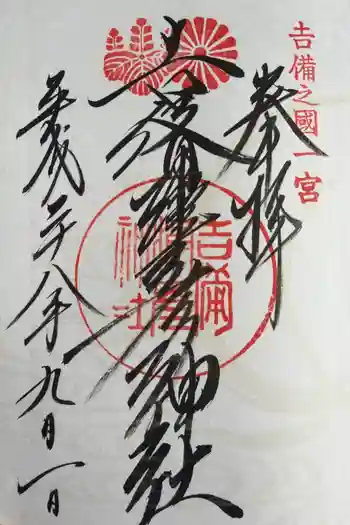 吉備之國一宮
奉拝
吉備津彦神社
平成二十八年九月一日